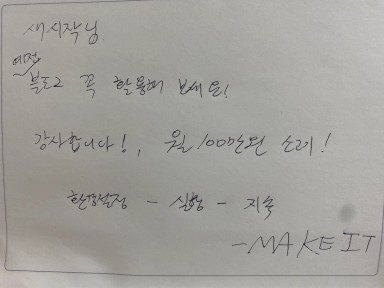 새시작님.
예전
블로그 꼭 활용해 보세요!
감사합니다!, 월 100만원 소개!
환경설정 - 실행 - 지속
- MAKE IT